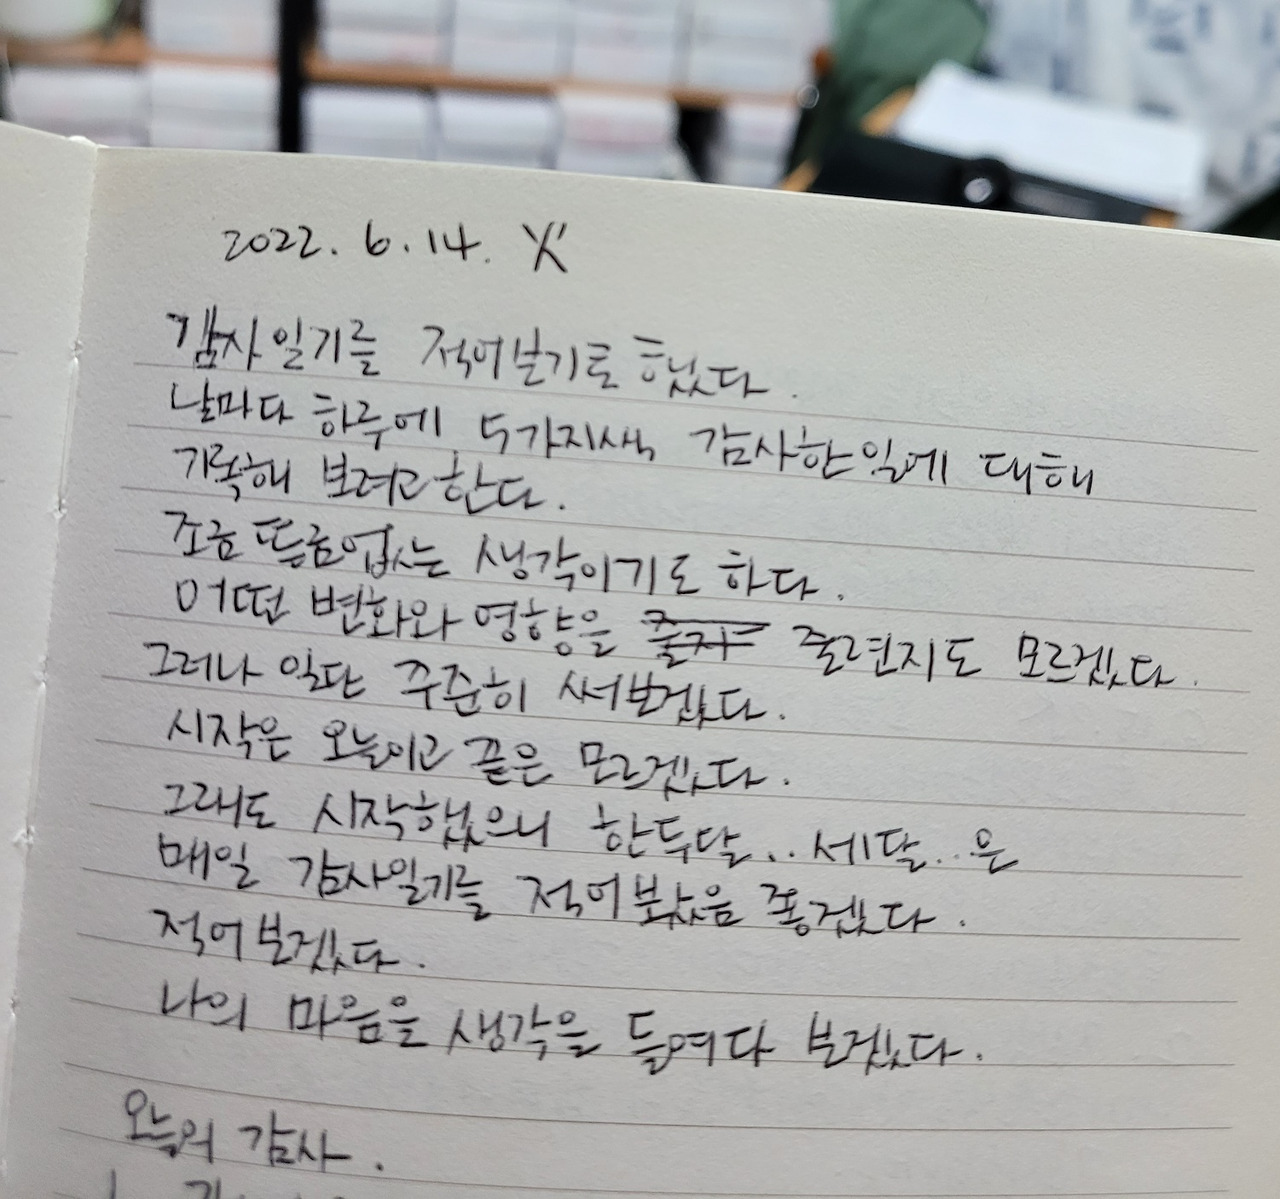 2022. 6. 14. 火
감사일기를 적어보기로 했다.
날마다 하루에 5가지씩 감사한일에 대해
기록해 보려고한다.
조금 뜬금없는 생각이기도 하다.
어떤 변화와 영향을 줄지 줄련지도 모르겠다.
그러나 일단 꾸준히 써보겠다.
시작은 오늘이고 끝은 모르겠다.
그래도 시작했으니 한두달.. 세달..은
매일 감사일기를 적어봤음 좋겠다.
적어보겠다.
나의 마음을 생각을 들여다 보겠다.
오늘의 감사.